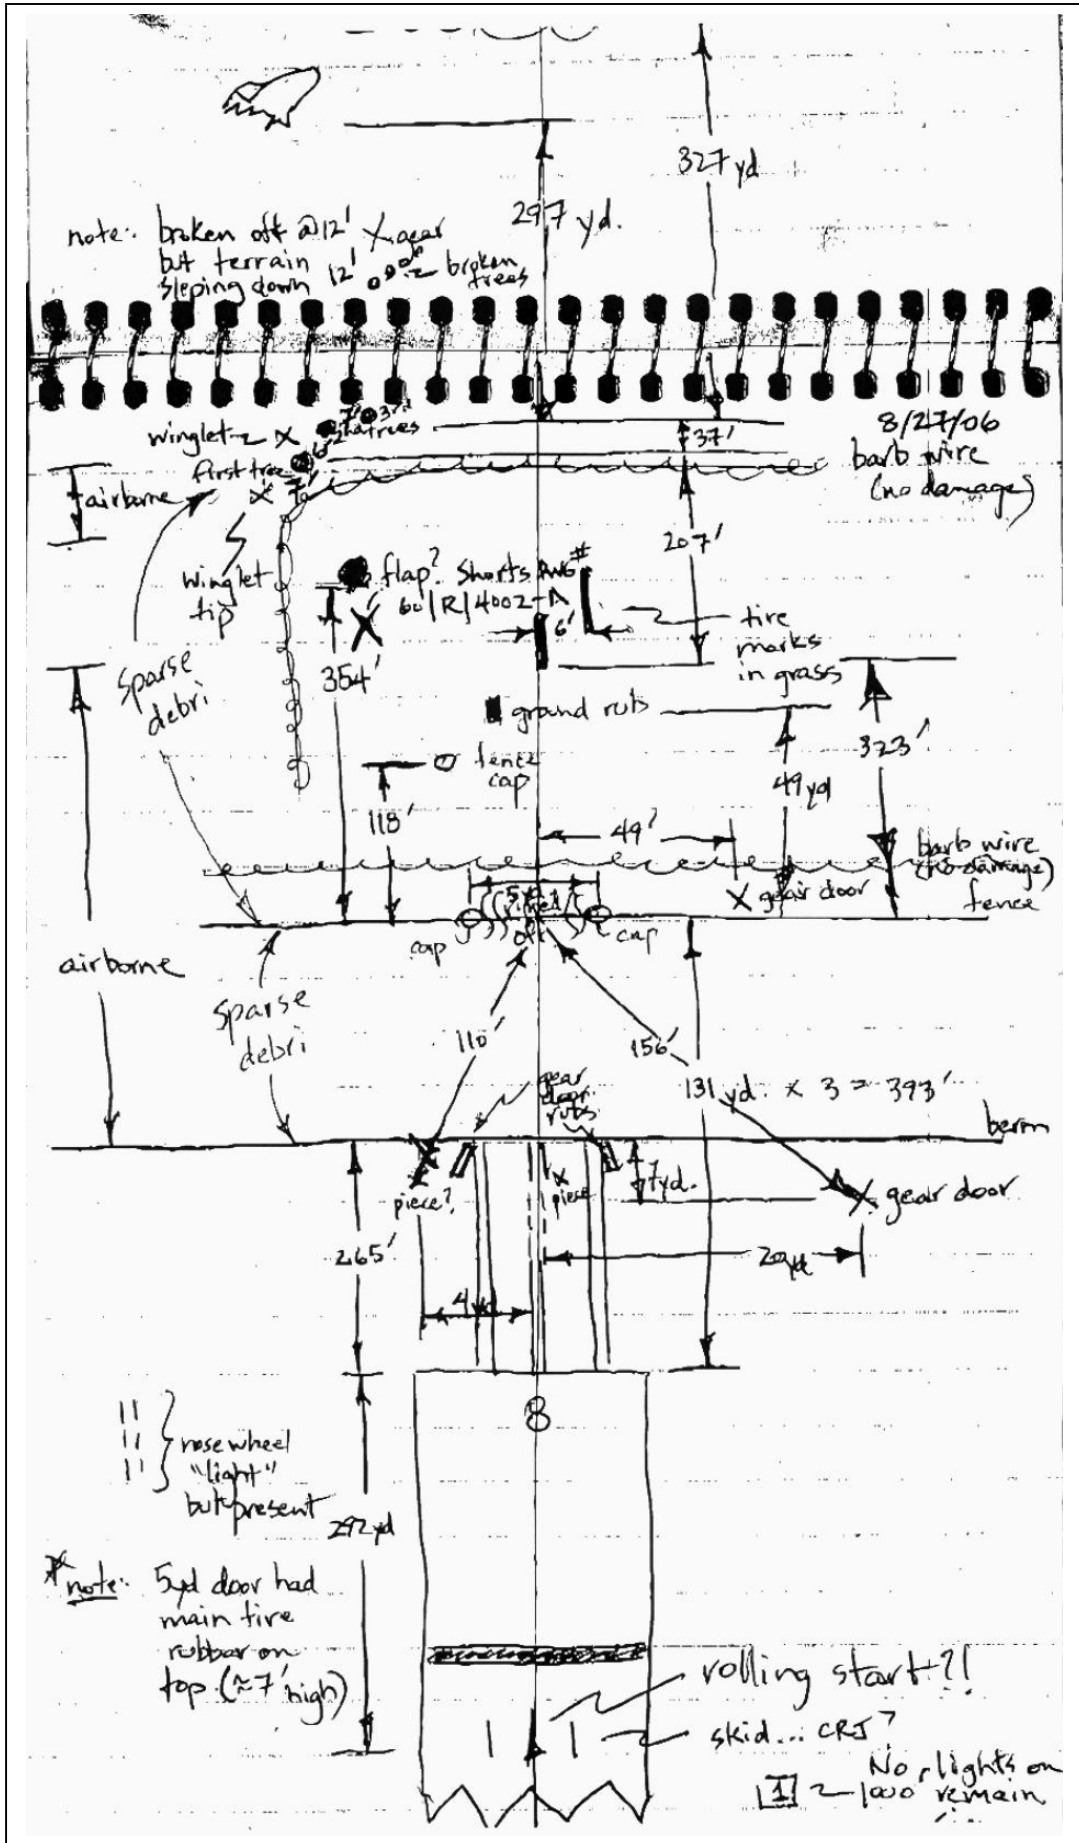 327 yd
297 yd.
note: broken off @12'
but terrain
sleping down
X gear
12'
broken
trees
8/27/06
winglet
7' 3rd
trees
37'
first tree
barb wire
(no damage)
airborne
7'
207'
winglet
tip
flap? Shorts
60/R/4002-A
6'
tire
marks
in grass
Sparse
debri
354'
ground ruts
323'
fence
cap
49 yd
118'
49'
barb wire
(no damage)
fence
X gear door
5yd
cap
cap
airborne
Sparse
debri
110'
156'
131 yd. x 3 = 393'
gear
door
ruts
berm
piece?
X
piece
7yd.
X gear door
265'
20yd
4
8
11
11
11
nosewheel
"light"
but present
292 yd
* note: 5yd door had
main tire
rubbar on
top (≈7' high)
rolling start?!
skid... CRJ?
No lights on
1 ~1000' remain